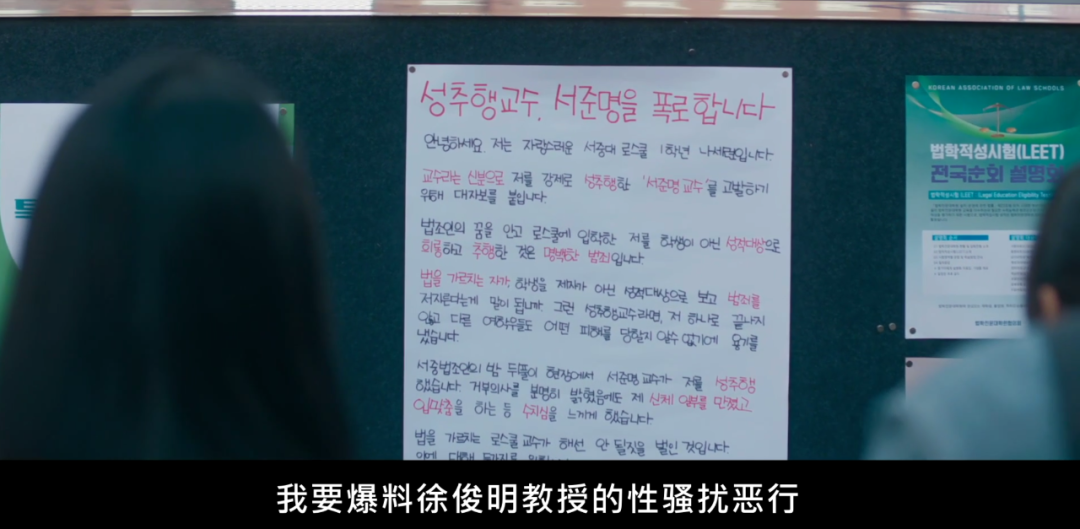 성추행교수, 서준명을 폭로합니다
안녕하세요. 저는 자랑스러운 서중대 로스쿨 1학년 나세련입니다.
교수라는 신분으로 저를 강제로 성추행한 '서준명 교수'를 고발하기
위해 대자보를 붙입니다.
법조인의 꿈을 안고 로스쿨에 입학한 저를 학생이 아닌 성적대상으로
희롱하고 추행한 것은 명백한 범죄입니다.
법을 가르치는 자가, 학생을 제자가 아닌 성적대상으로 보고 범죄를
저지른다는게 말이 됩니까. 그런 성추행교수라면, 저 하나로 끝나지
않고 다른 여학우들도 어떤 피해를 당할지 알수 없기에 용기를
냈습니다.
서중법조인의 밤 뒤풀이 현장에서 서준명 교수가 저를 성추행
했습니다. 거부의사를 분명히 밝혔음에도 제 신체 일부를 만졌고
입맞춤을 하는 등 수치심을 느끼게 했습니다.
법을 가르치는 로스쿨 교수가 해선 안 될짓을 벌인 것입니다.
KOREAN ASSOCIATION OF LAW SCHOOLS
법학적성시험(LEET)
전국순회 설명회
我要爆料徐俊明教授的性骚扰恶行